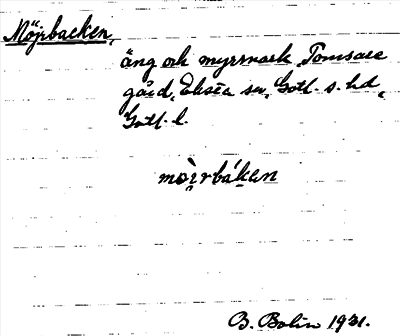 Möjrbacken,
äng och myrmark Tomsare
gård, Eksta sn, Gotl. s. hd,
Gotl. l.
mòi̯rbákan
B. Bolin 1931.